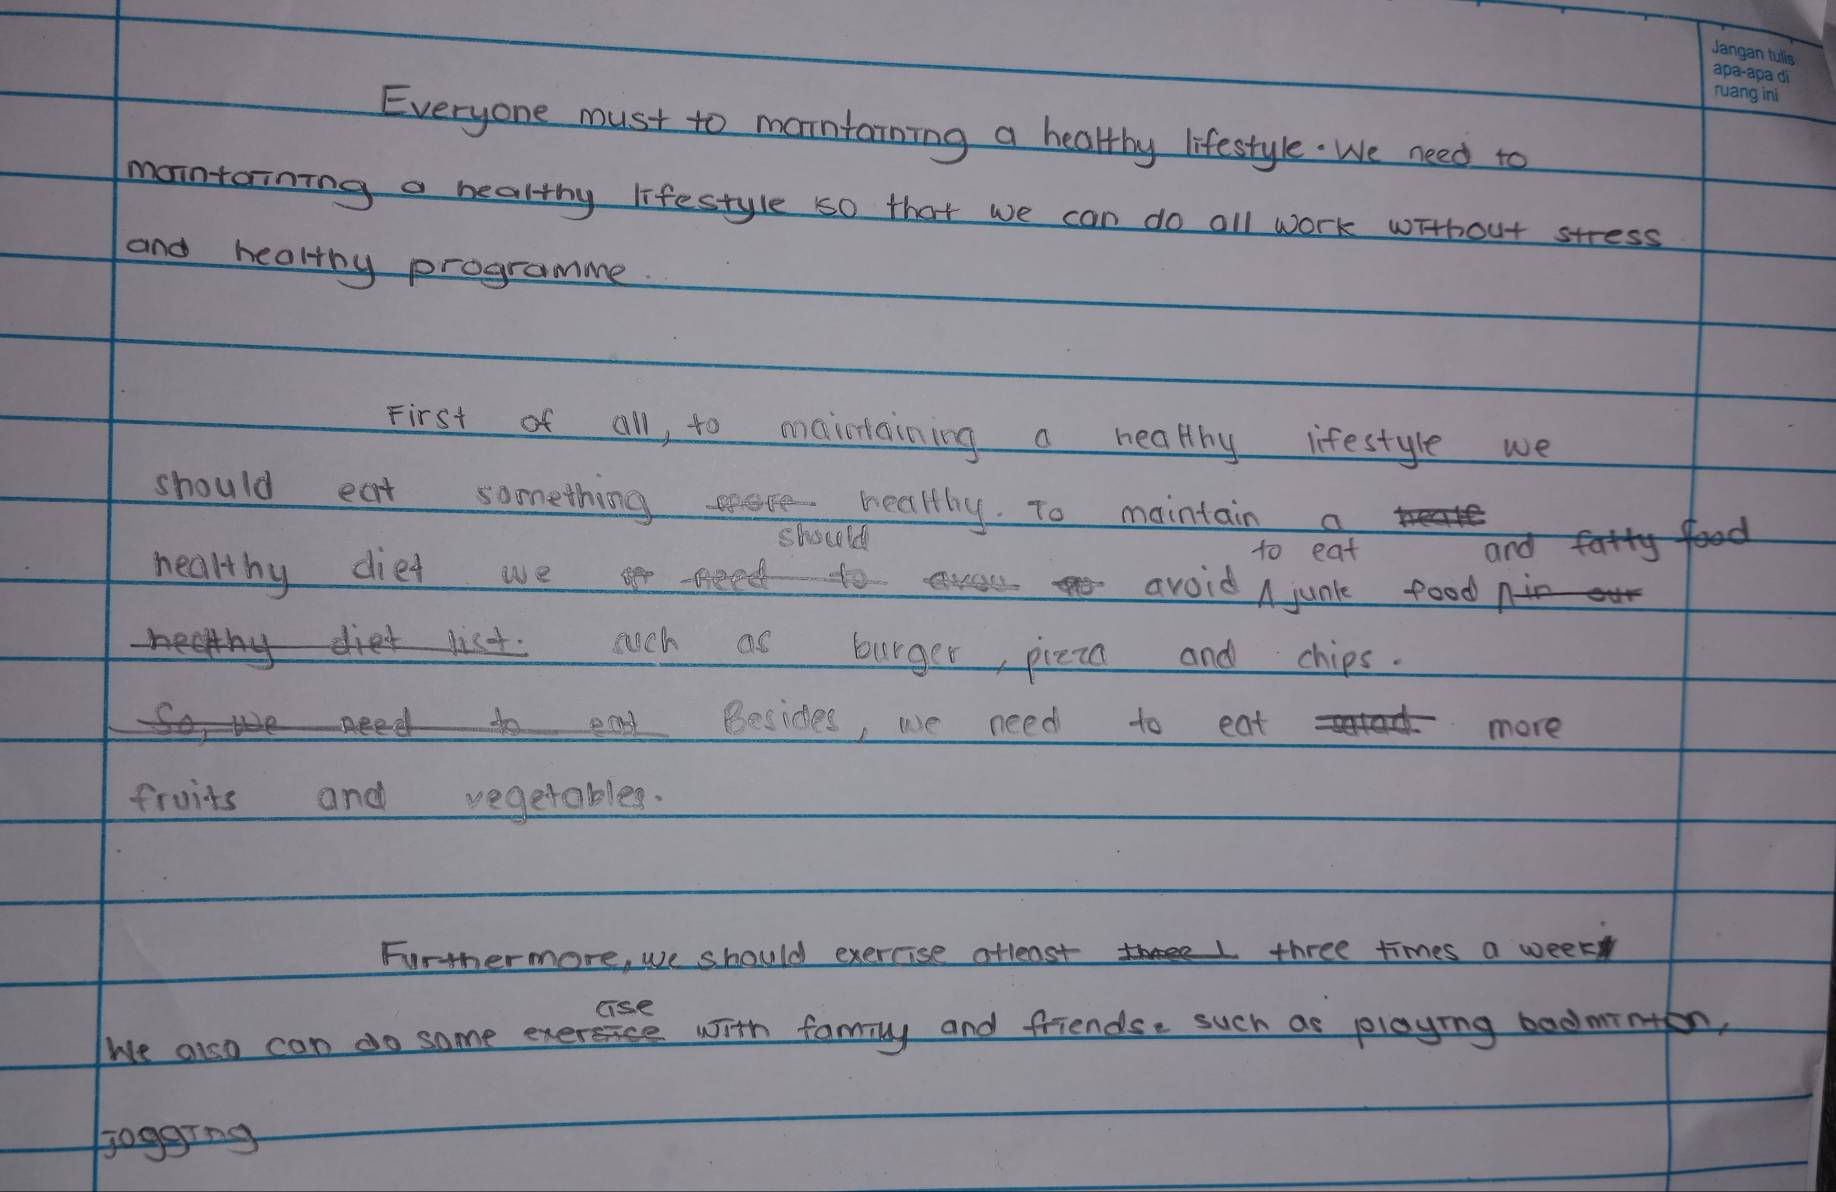 Jangan tulis
apa-apa di
ruang ini
Everyone must to maintaining a healthy lifestyle. We need to
maintaining a healthy lifestyle so that we can do all work without stress
and healthy programme.
First of all, to maintaining a healthy lifestyle we
should eat something more healthy. To maintain a
should to eat and fatty food
healthy diet we need to avoid junk food in our
healthy diet list. such as burger, pizza and chips.
So, we need to eat Besides, we need to eat more
fruits and vegetables.
Furthermore, we should exercise atleast three times a week
cise
We also can do some exersice with family and friends. such as playing badminton,
jogging